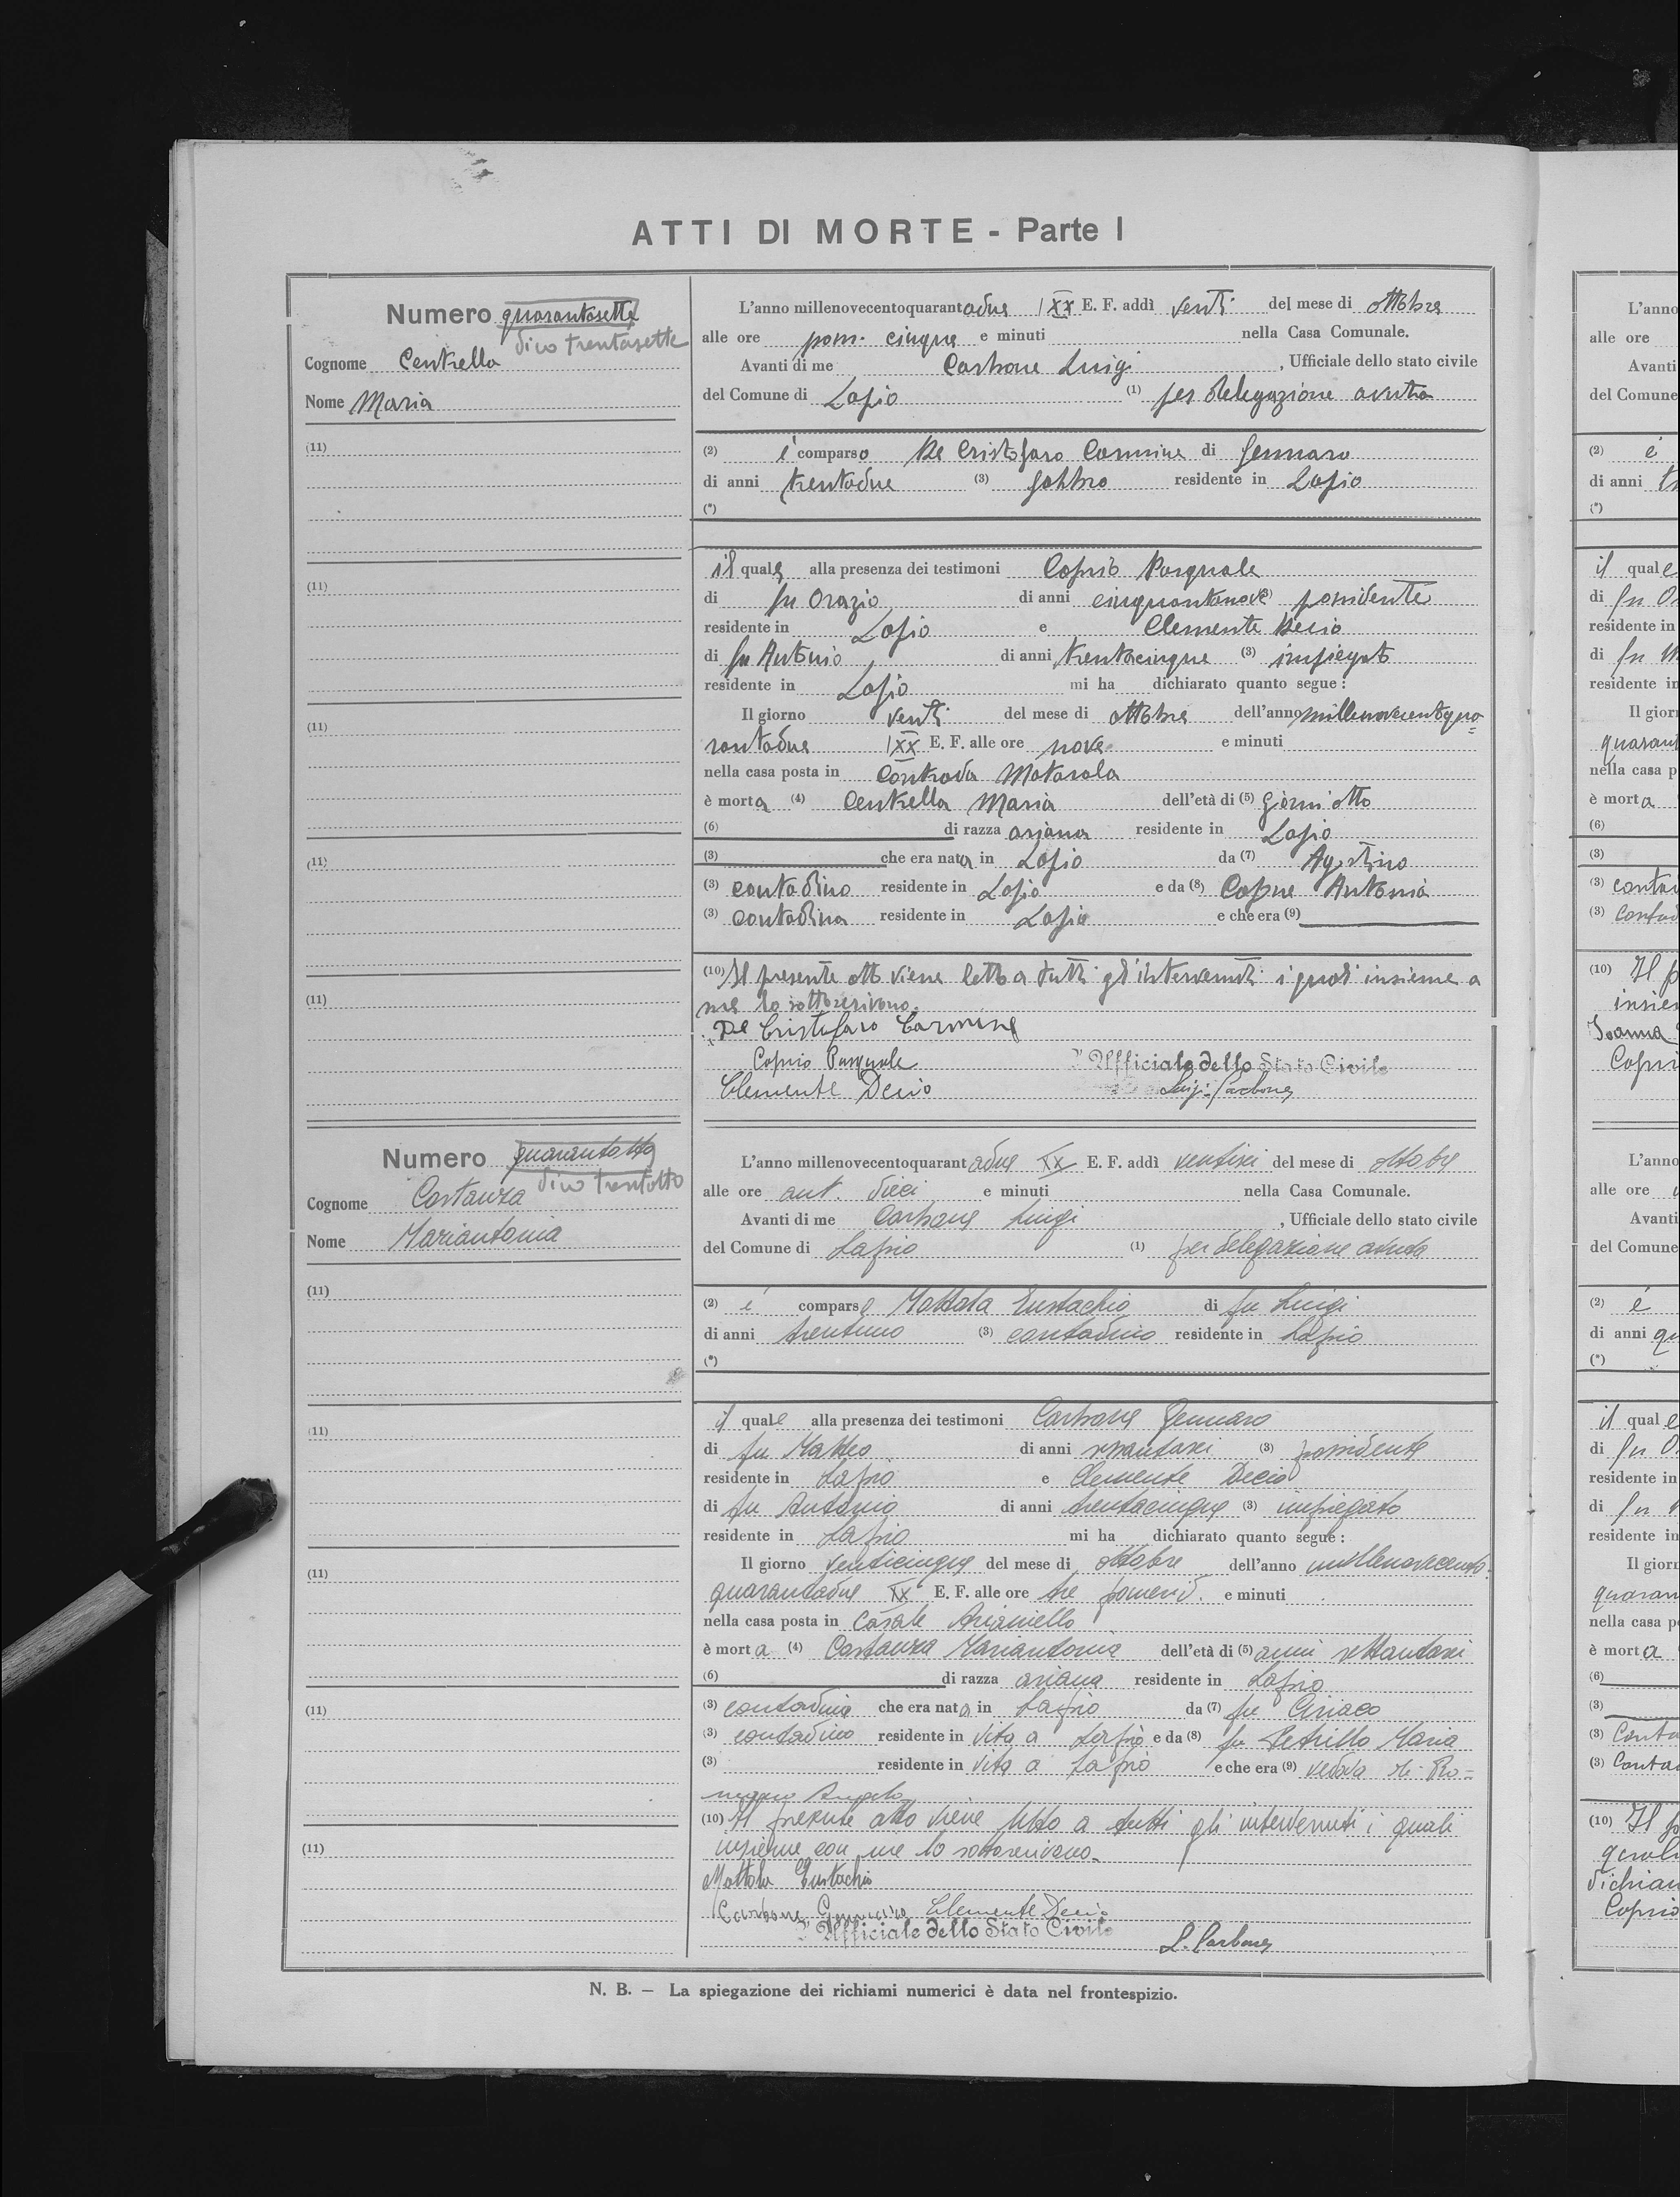 ATTI DI MORTE - Parte I
Numero quarantasette
dico trentasette
Cognome Centrella
Nome Maria
(11)
(11)
(11)
(11)
(11)
L'anno millenovecentoquarantadue XX E. F. addì venti del mese di ottobre
alle ore pom. cinque e minuti nella Casa Comunale.
Avanti di me Carbone Luigi , Ufficiale dello stato civile
del Comune di Lapio (1) per delegazione avuta
(2) è comparso De Cristofaro Carmine di Gennaro
di anni trentadue (3) fabbro residente in Lapio
(*)
il quale alla presenza dei testimoni Caprio Pasquale
di fu Orazio di anni cinquantanove (3) possidente
residente in Lapio e Clemente Decio
di fu Antonio di anni trentacinque (3) impiegato
residente in Lapio mi ha dichiarato quanto segue :
Il giorno venti del mese di ottobre dell'anno millenovecentoqua=
rantadue XX E. F. alle ore nove e minuti
nella casa posta in Contrada
è morta (4) Centrella Maria dell'età di (5) giorni otto
(6) di razza ariana residente in Lapio
(3) che era nata in Lapio da (7) Agostino
(3) contadino residente in Lapio e da (8) Antonia
(3) contadina residente in Lapio e che era (9)
(10) Il presente atto viene letto a tutti gl'intervenuti i quali insieme a
me lo sottoscrivono.
De Cristofaro Carmine
Caprio Pasquale L'Ufficiale dello Stato Civile
Clemente Decio Luigi Carbone
Numero quarantotto
dico trentotto
Cognome Costanza
Nome Mariantonia
(11)
(11)
(11)
(11)
(11)
L'anno millenovecentoquarantadue XX E. F. addì ventisei del mese di ottobre
alle ore ant. dieci e minuti nella Casa Comunale.
Avanti di me Carbone Luigi , Ufficiale dello stato civile
del Comune di Lapio (1) per delegazione avuta
(2) è comparso Mottola Eustachio di fu Luigi
di anni trentuno (3) contadino residente in Lapio
(*)
il quale alla presenza dei testimoni Carbone Gennaro
di fu Matteo di anni (3) possidente
residente in Lapio e Clemente Decio
di fu Antonio di anni trentacinque (3) impiegato
residente in Lapio mi ha dichiarato quanto segue :
Il giorno venticinque del mese di ottobre dell'anno millenovecento=
quarantadue XX E. F. alle ore tre pomerid. e minuti
nella casa posta in Casale Arianiello
è morta (4) Costanza Mariantonia dell'età di (5) anni settantasei
(6) di razza ariana residente in Lapio
(3) contadina che era nata in Lapio da (7) fu Ciriaco
(3) contadino residente in vita a Lapio e da (8) fu Petrillo Maria
(3) residente in vita a Lapio e che era (9) vedova di Ro=
mano Angelo
(10) Il presente atto viene letto a tutti gli intervenuti i quali
insieme con me lo sottoscrivono.
Mottola Eustachio
Carbone Gennaro Clemente Decio
L'Ufficiale dello Stato Civile
L. Carbone
N. B. — La spiegazione dei richiami numerici è data nel frontespizio.
L'anno
alle ore
Avanti
del Comune
(2) è
di anni
(*)
il quale
di fu
residente in
di fu
residente in
Il giorn
quarant
nella casa p
è morta
(6)
(3)
(3)
(3)
(10) Il p
insie
Caprio
L'anno
alle ore
Avanti
del Comune
(2) è
di anni
(*)
il quale
di fu
residente in
di fu
residente in
Il giorn
quaran
nella casa po
è morta
(6)
(3)
(3) Conta
(3) Conta
(10) Il p
dichian
Caprio